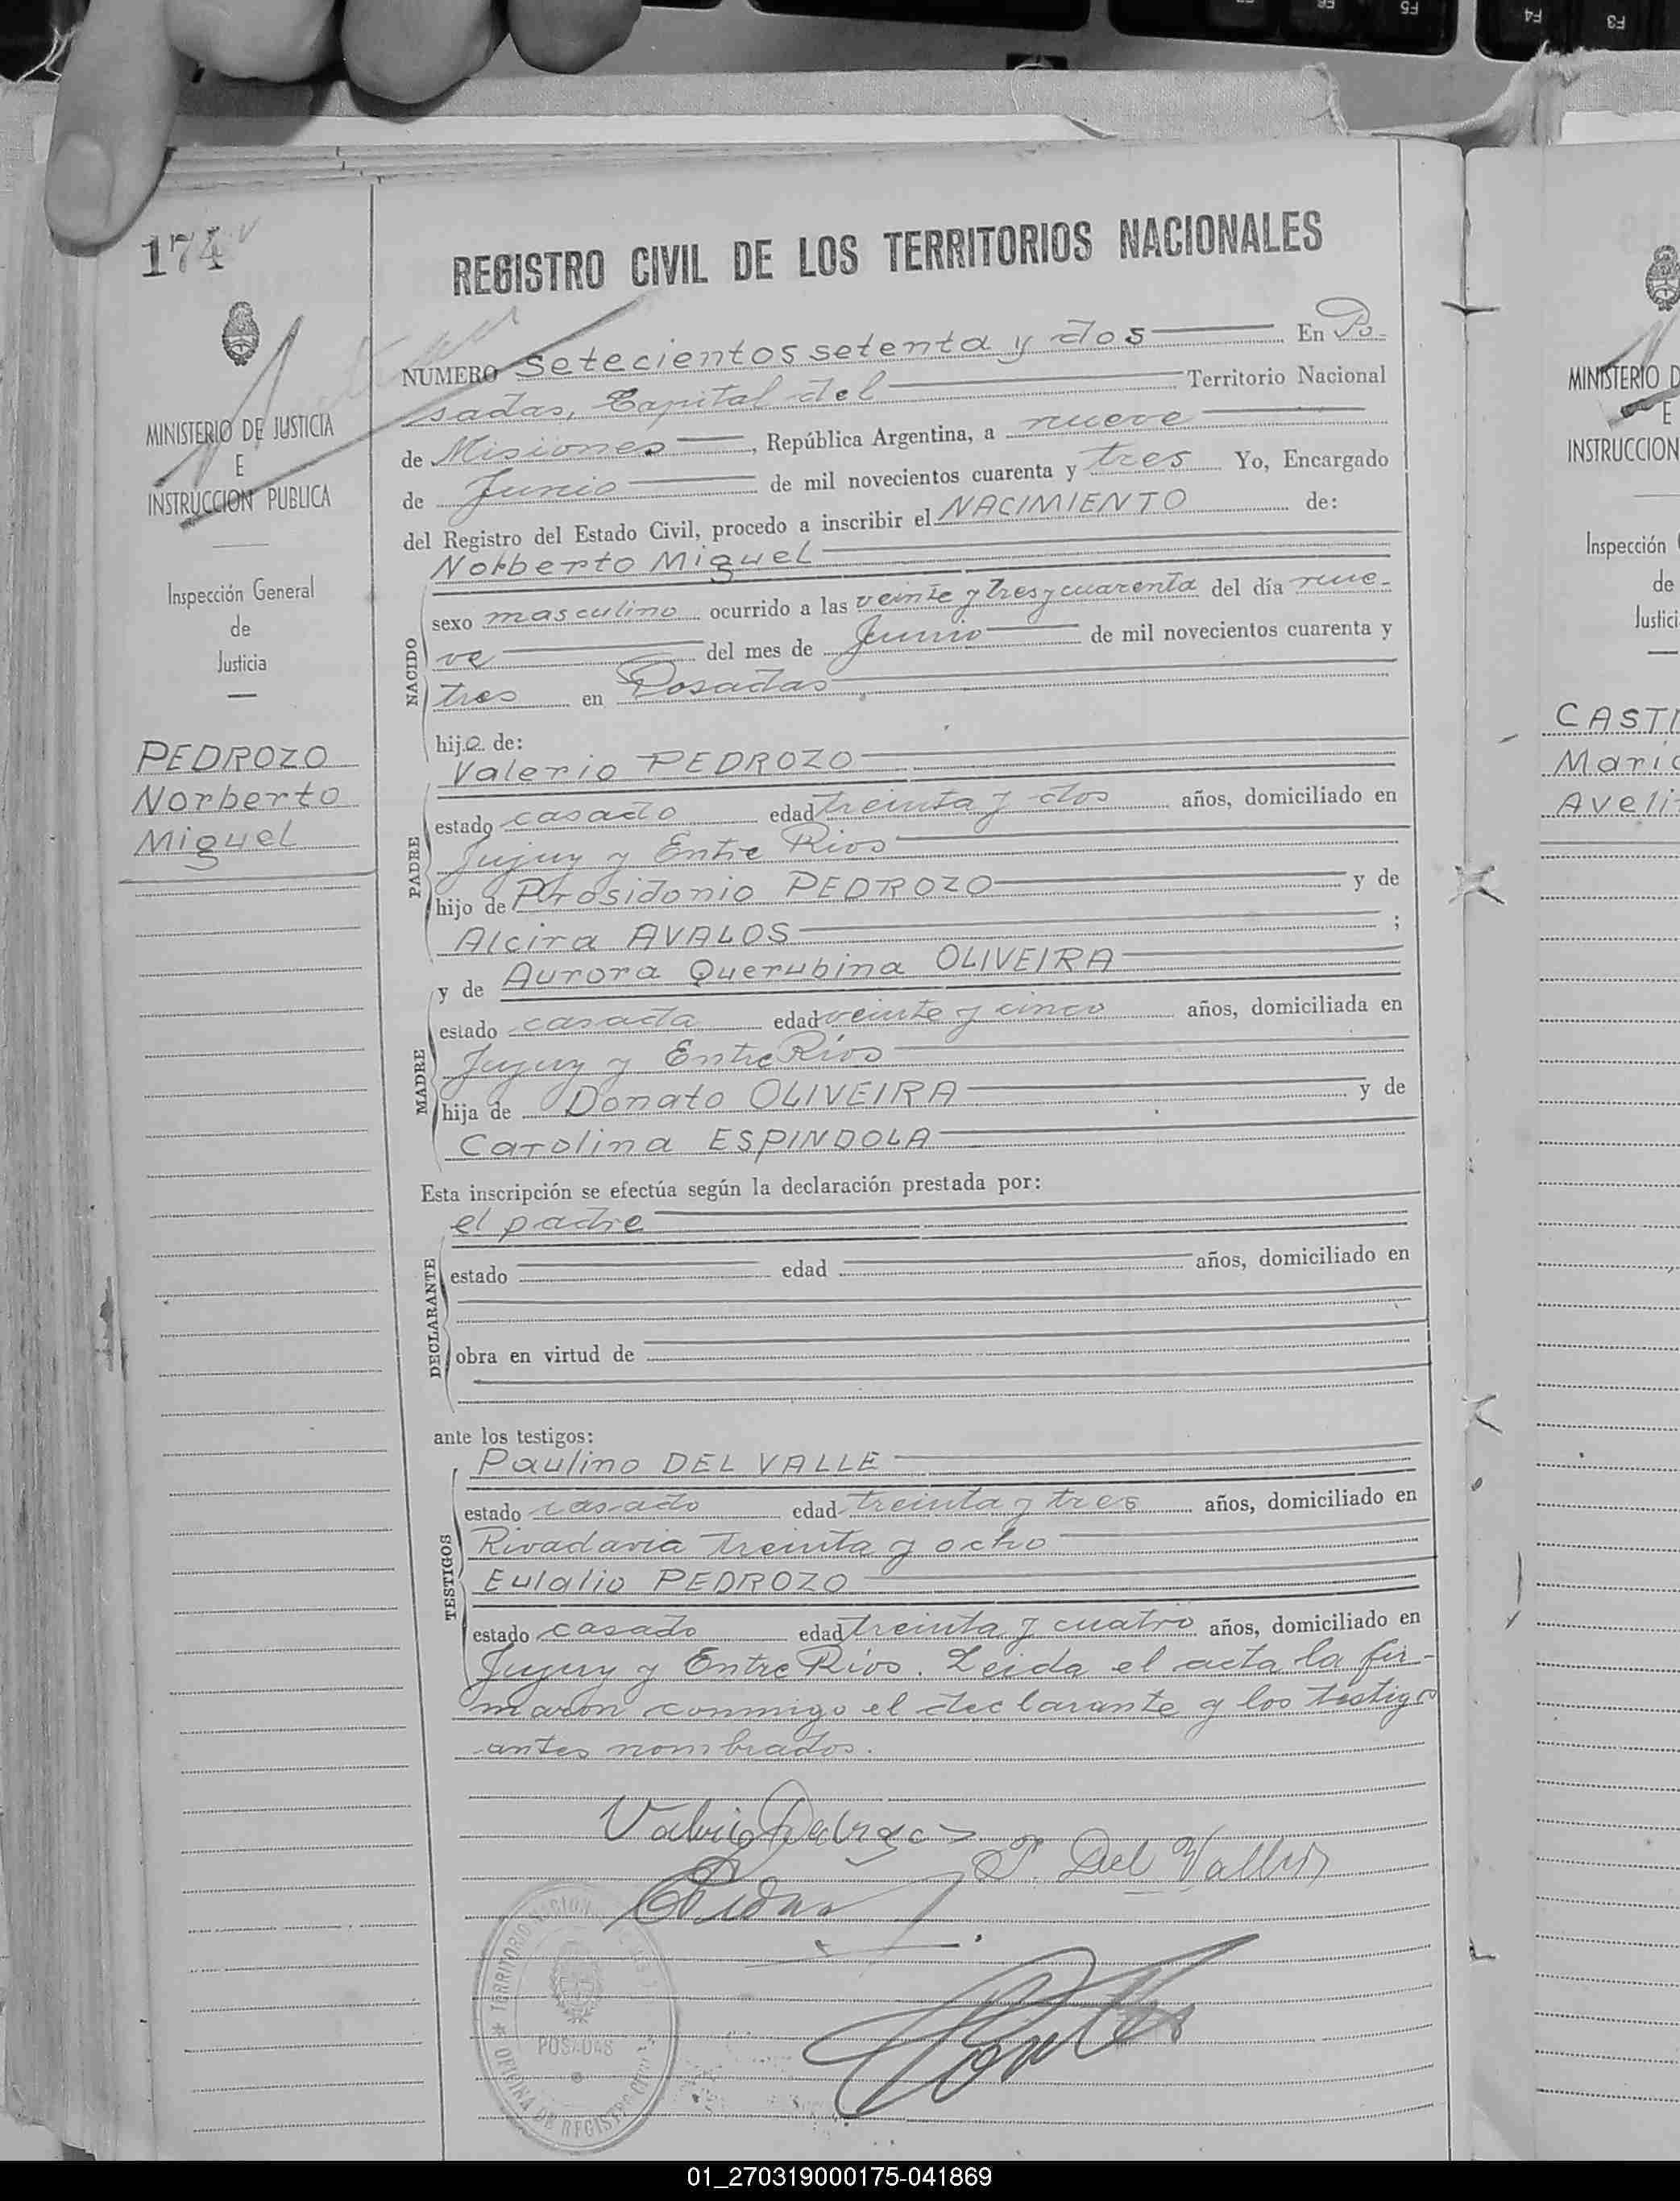 F5
F4
F3
174
REGISTRO CIVIL DE LOS TERRITORIOS NACIONALES
MINISTERIO DE JUSTICIA
E
INSTRUCCION PUBLICA
Inspección General
de
Justicia
PEDROZO
Norberto
Miguel
NUMERO Setecientos setenta y dos En Po-
sadas, Capital del Territorio Nacional
de Misiones, República Argentina, a nueve
de Junio de mil novecientos cuarenta y tres Yo, Encargado
del Registro del Estado Civil, procedo a inscribir el NACIMIENTO de:
Norberto Miguel
NACIDO
sexo masculino ocurrido a las veinte y tres y cuarenta del día nue-
ve del mes de Junio de mil novecientos cuarenta y
tres en Posadas
hijo de:
Valerio PEDROZO
PADRE
estado casado edad treinta y dos años, domiciliado en
Jujuy y Entre Rios
hijo de Prosidonio PEDROZO y de
Alcira AVALOS ;
y de Aurora Querubina OLIVEIRA
MADRE
estado casada edad veinte y cinco años, domiciliada en
Jujuy y Entre Rios
hija de Donato OLIVEIRA y de
Carolina ESPINDOLA
Esta inscripción se efectúa según la declaración prestada por:
el padre
DECLARANTE
estado edad años, domiciliado en
obra en virtud de
ante los testigos:
Paulino DEL VALLE
TESTIGOS
estado casado edad treinta y tres años, domiciliado en
Rivadavia treinta y ocho
Eulalio PEDROZO
estado casado edad treinta y cuatro años, domiciliado en
Jujuy y Entre Rios. Leida el acta la fir-
maron conmigo el declarante y los testigos
antes nombrados.
P. Del Valle
TERRITORIO NACIONAL
POSADAS
OFICINA DE REGISTRO CIVIL
MINISTERIO D
E
INSTRUCCION
Inspección
de
Justici
CASTI
Maria
Aveli
01_270319000175-041869